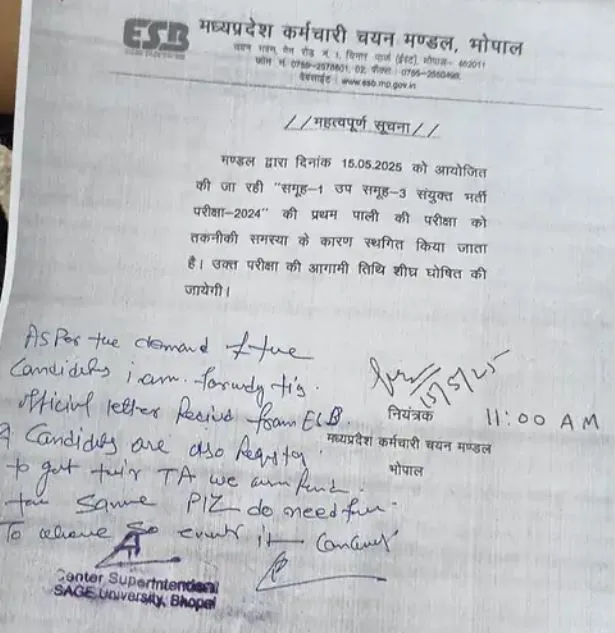 ESB मध्यप्रदेश कर्मचारी चयन मण्डल, भोपाल
चयन भवन, मेन रोड नं. 1, चिनार पार्क (ईस्ट), भोपाल- 462011
फोन नं. 0755-2578801, 02, फैक्स : 0755-2550498,
वेबसाईट : www.esb.mp.gov.in
//महत्वपूर्ण सूचना//
मण्डल द्वारा दिनांक 15.05.2025 को आयोजित
की जा रही "समूह-1 उप समूह-3 संयुक्त भर्ती
परीक्षा-2024" की प्रथम पाली की परीक्षा को
तकनीकी समस्या के कारण स्थगित किया जाता
है। उक्त परीक्षा की आगामी तिथि शीघ्र घोषित की
जायेगी।
15/5/25
नियंत्रक 11:00 AM
मध्यप्रदेश कर्मचारी चयन मण्डल
भोपाल
As Per the demand of the
Candidates i am
official letter from ESB
Candidates are also
to get their TA we
the same PlZ do need
To
Center Superintendent
SAGE University, Bhopal